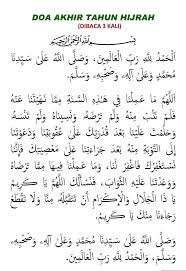 DOA AKHIR TAHUN HIJRAH
(DIBACA 3 KALI)
بِسْمِ اللهِ الرَّحْمٰنِ الرَّحِيْمِ
اَلْحَمْدُ لِلّٰهِ رَبِّ الْعَالَمِيْنَ، وَصَلَّى اللهُ عَلَى سَيِّدِنَا
مُحَمَّدٍ وَعَلَى آلِهِ، وَصَحْبِهِ، وَسَلَّمَ.
اَللّٰهُمَّ مَا عَمِلْنَا فِي هٰذِهِ السَّنَةِ مِمَّا نَهَيْتَنَا عَنْهُ
فَلَمْ نَتُبْ مِنْهُ وَلَمْ تَرْضَهُ، وَنَسِيْنَاهُ وَلَمْ تَنْسَهُ
وَحَلُمْتَ عَلَيْنَا بَعْدَ قُدْرَتِكَ عَلَى عُقُوْبَتِنَا وَدَعَوْتَنَا
إِلَى التَّوْبَةِ مِنْهُ بَعْدَ جَرَاءَتِنَا عَلَى مَعْصِيَتِكَ فَإِنَّا
نَسْتَغْفِرُكَ فَاغْفِرْ لَنَا، وَمَا عَمِلْنَا فِيْهَا مِمَّا تَرْضَاهُ
وَوَعَدْتَنَا عَلَيْهِ الثَّوَابَ، فَنَسْأَلُكَ اللّٰهُمَّ يَا كَرِيْمُ
يَا ذَا الْجَلَالِ وَالْإِكْرَامِ أَنْ تَتَقَبَّلَهُ مِنَّا وَلَا تَقْطَعْ
رَجَاءَنَا مِنْكَ يَا كَرِيْمُ.
وَصَلَّى اللهُ عَلَى سَيِّدِنَا مُحَمَّدٍ وَعَلَى آلِهِ، وَصَحْبِهِ
وَسَلَّمَ.